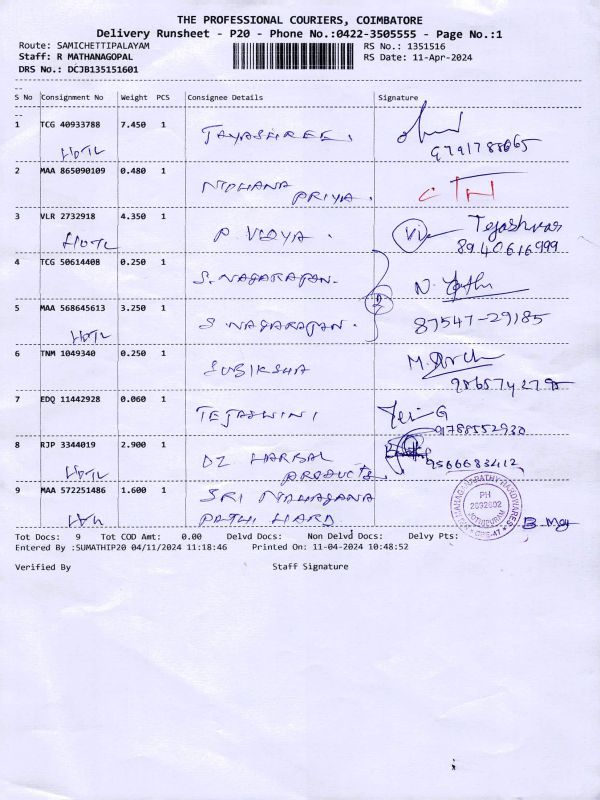 THE PROFESSIONAL COURIERS, COIMBATORE
Delivery Runsheet - P20 - Phone No.:0422-3505555 - Page No.:1
Route: SAMICHETTIPALAYAM RS No.: 1351516
Staff: R MATHANAGOPAL RS Date: 11-Apr-2024
DRS No.: DCJB135151601
S No Consignment No Weight PCS Consignee Details Signature
1 TCG 40933788 7.450 1 JAYASHREE.
9791788665
2 MAA 865090109 0.480 1 NIPHANA
PRIYA. CTN
3 VLR 2732918 4.350 1 P VIDYA. Tejashwar
8940616999
4 TCG 50614408 0.250 1 S. NAGARAJAN.
2
5 MAA 568645613 3.250 1 S NAGARAJAN. 87547-29185
6 TNM 1049340 0.250 1 SUBIKSHA
9865742795
7 EDQ 11442928 0.060 1 TEJASWINI G
9788552930
8 RJP 3344019 2.900 1 DZ HARBAL
PRODUCTS. 9566683412
9 MAA 572251486 1.600 1 SRI
PATHI HARD
PH
2692602
Tot Docs: 9 Tot COD Amt: 0.00 Delvd Docs: Non Delvd Docs: Delvy Pts:
Entered By :SUMATHIP20 04/11/2024 11:18:46 Printed On: 11-04-2024 10:48:52
Verified By Staff Signature